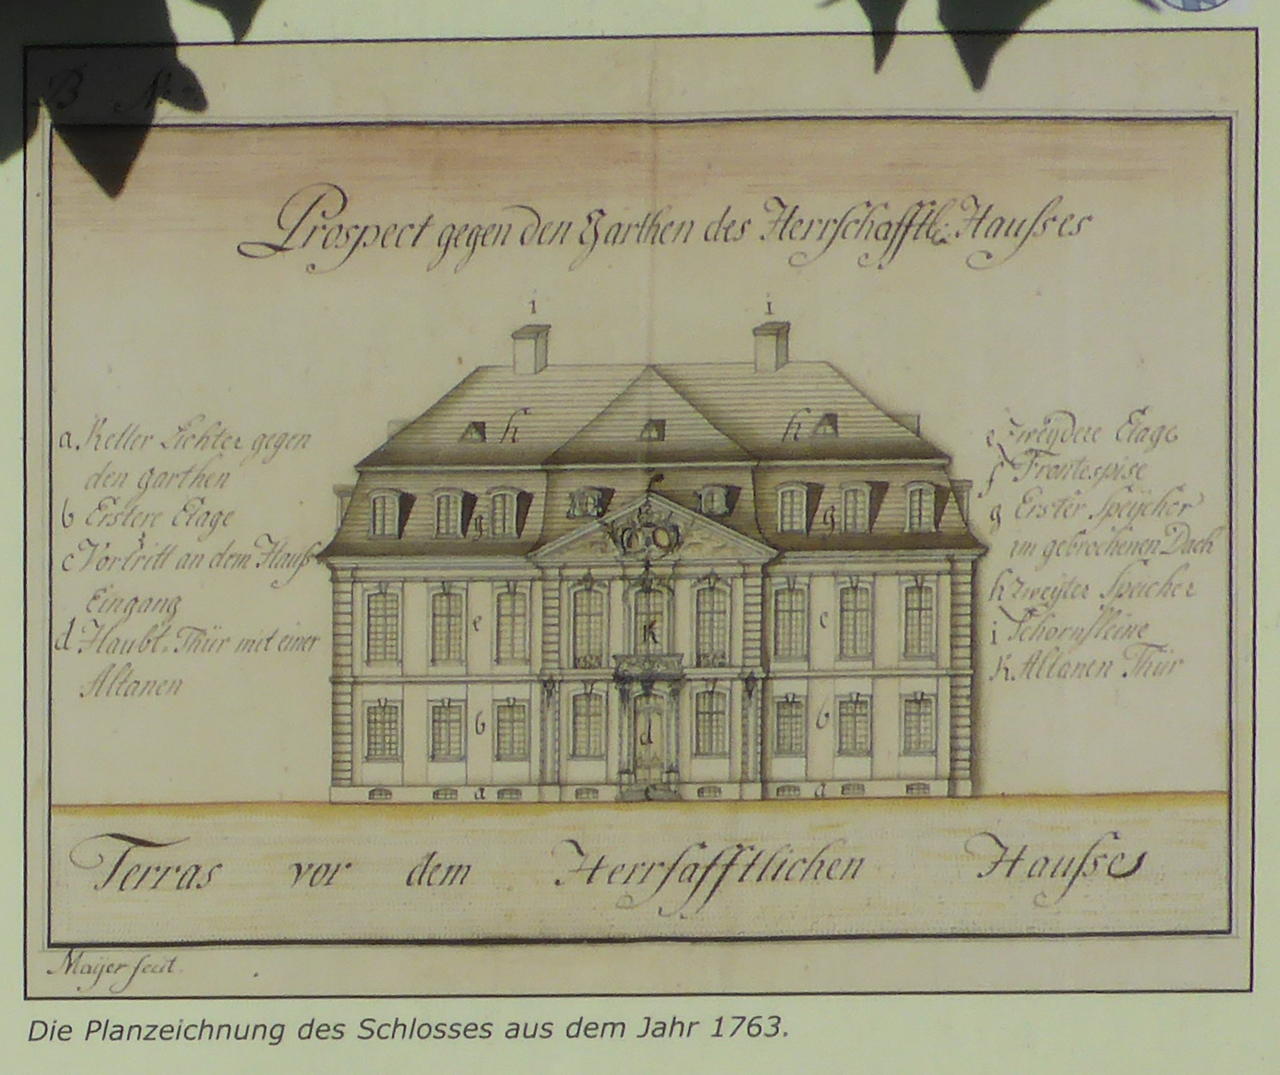 B N:
Prospect gegen den Garthen des Herrschafftl: Hausses
i i
a. Keller Lichter gegen
den garthen
b Erstere Etage
c Vortritt an dem Hauß
Eingang
d Haubt-Thür mit einer
Altanen
h h
g g
e K e
b d b
a c a
e Zweÿdere Etage
f Frontespise
g Erster Speÿcher
im gebrochenen Dach
h zweÿter Speicher
i Schornsteine
K. Altanen Thür
Terras vor dem Herrsafftlichen Hausses
Maÿer fecit.
Die Planzeichnung des Schlosses aus dem Jahr 1763.